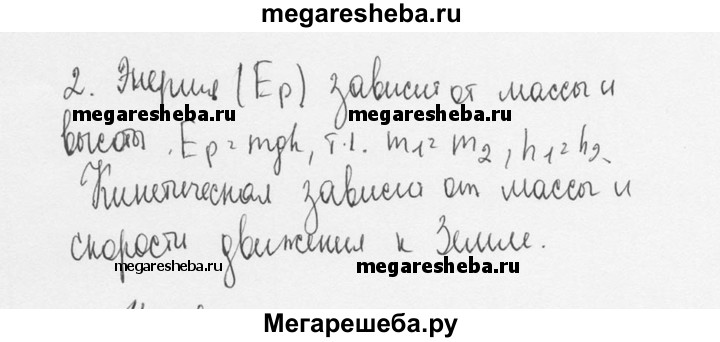 megaresheba.ru
2. Энергия (Ep) зависит от массы и
megaresheba.ru megaresheba.ru
высоты. Ep = mgh, т.к. m1 = m2, h1 = h2.
Кинетическая зависит от массы и
скорости движения к Земле.
megaresheba.ru megaresheba.ru
Мегарешеба.ру